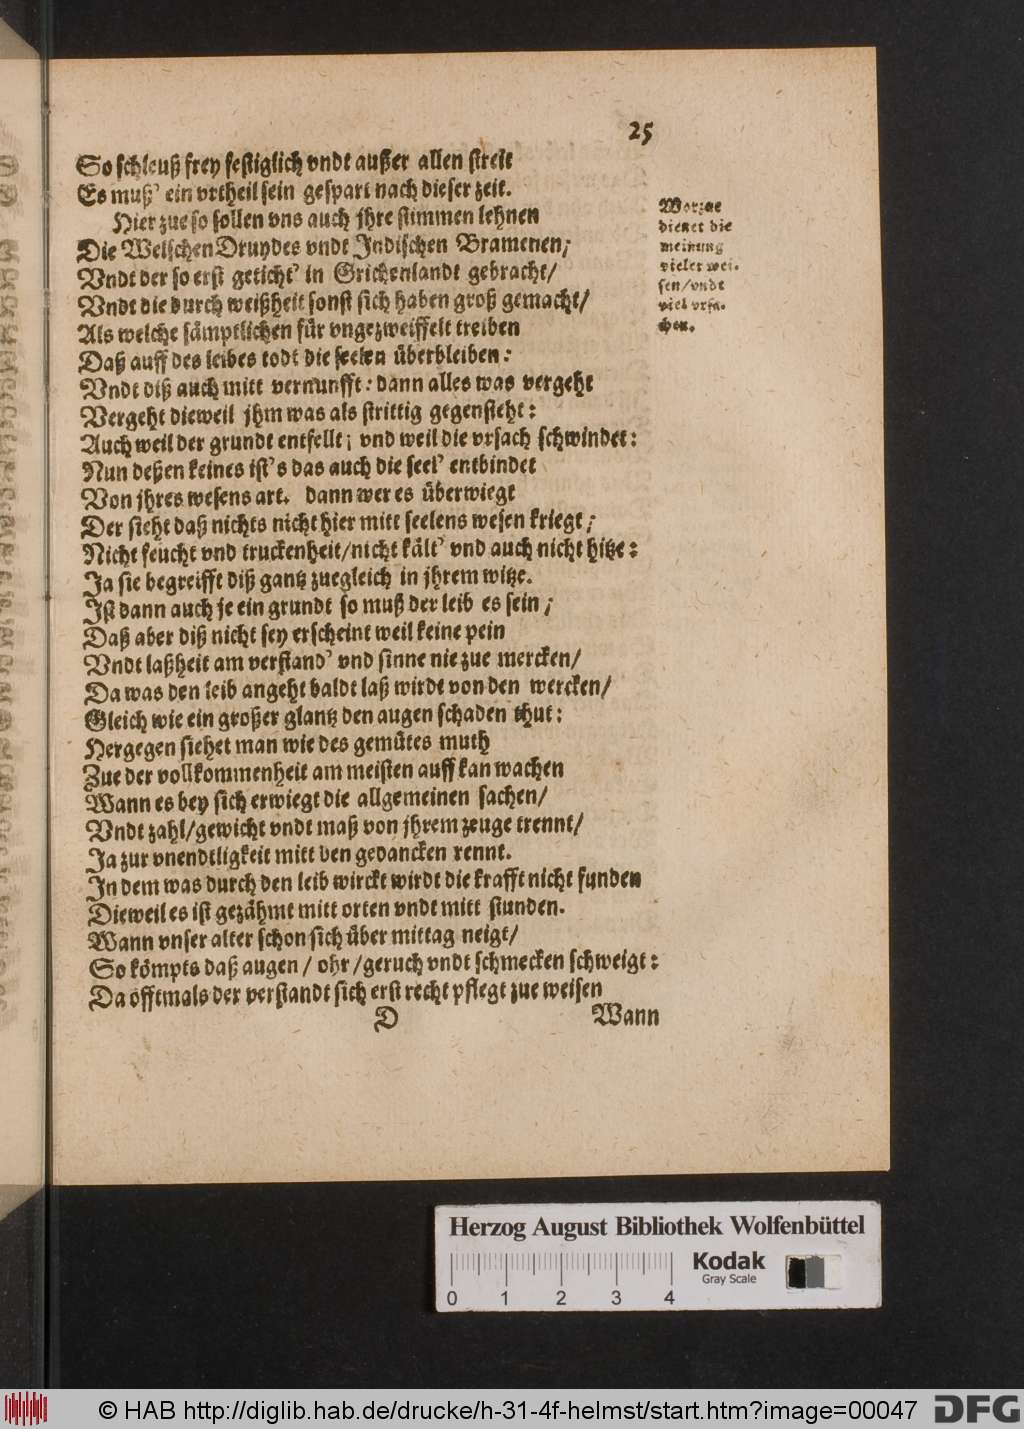 25
So schleuß frey festiglich vndt außer allen streit
Es muß' ein vrtheil sein gespart nach dieser zeit.
Hier zue so sollen vns auch jhre stimmen lehnen
Die Welschen Druydes vndt Indischen Bramenen;
Vndt der so erst geticht' in Grichenlandt gebracht/
Vndt die durch weißheit sonst sich haben groß gemacht/
Als welche sämptlichen für vngezweiffelt treiben
Daß auff des leibes todt die seelen überbleiben:
Vndt diß auch mitt vernunfft: dann alles was vergeht
Vergeht dieweil jhm was als strittig gegensteht:
Auch weil der grundt entfellt; vnd weil die vrsach schwindet:
Nun deßen keines ist's das auch die seel' entbindet
Von jhres wesens art. dann wer es überwiegt
Der sieht daß nichts nicht hier mitt seelens wesen kriegt;
Nicht feucht vnd truckenheit/nicht kält' vnd auch nicht hitze:
Ja sie begreifft diß gantz zuegleich in jhrem witze.
Ist dann auch je ein grundt so muß der leib es sein;
Daß aber diß nicht sey erscheint weil keine pein
Vndt laßheit am verstand' vnd sinne nie zue mercken/
Da was den leib angeht baldt laß wirdt von den wercken/
Gleich wie ein großer glantz den augen schaden thut:
Hergegen siehet man wie des gemütes muth
Zue der vollkommenheit am meisten auff kan wachen
Wann es bey sich erwiegt die allgemeinen sachen/
Vndt zahl/gewicht vndt maß von jhrem zeuge trennt/
Ja zur vnendtligkeit mitt den gedancken rennt.
In dem was durch den leib wirckt wirdt die krafft nicht funden
Dieweil es ist gezähmt mitt orten vndt mitt stunden.
Wann vnser alter schon sich über mittag neigt/
So kömpts daß augen / ohr /geruch vndt schmecken schweigt:
Da offtmals der verstandt sich erst recht pflegt zue weisen
D Wann
Worzue
dienet die
meinung
vieler wei-
sen/vndt
viel vrsa-
chen.
Herzog August Bibliothek Wolfenbüttel
Kodak
Gray Scale
0 1 2 3 4
© HAB http://diglib.hab.de/drucke/h-31-4f-helmst/start.htm?image=00047
DFG